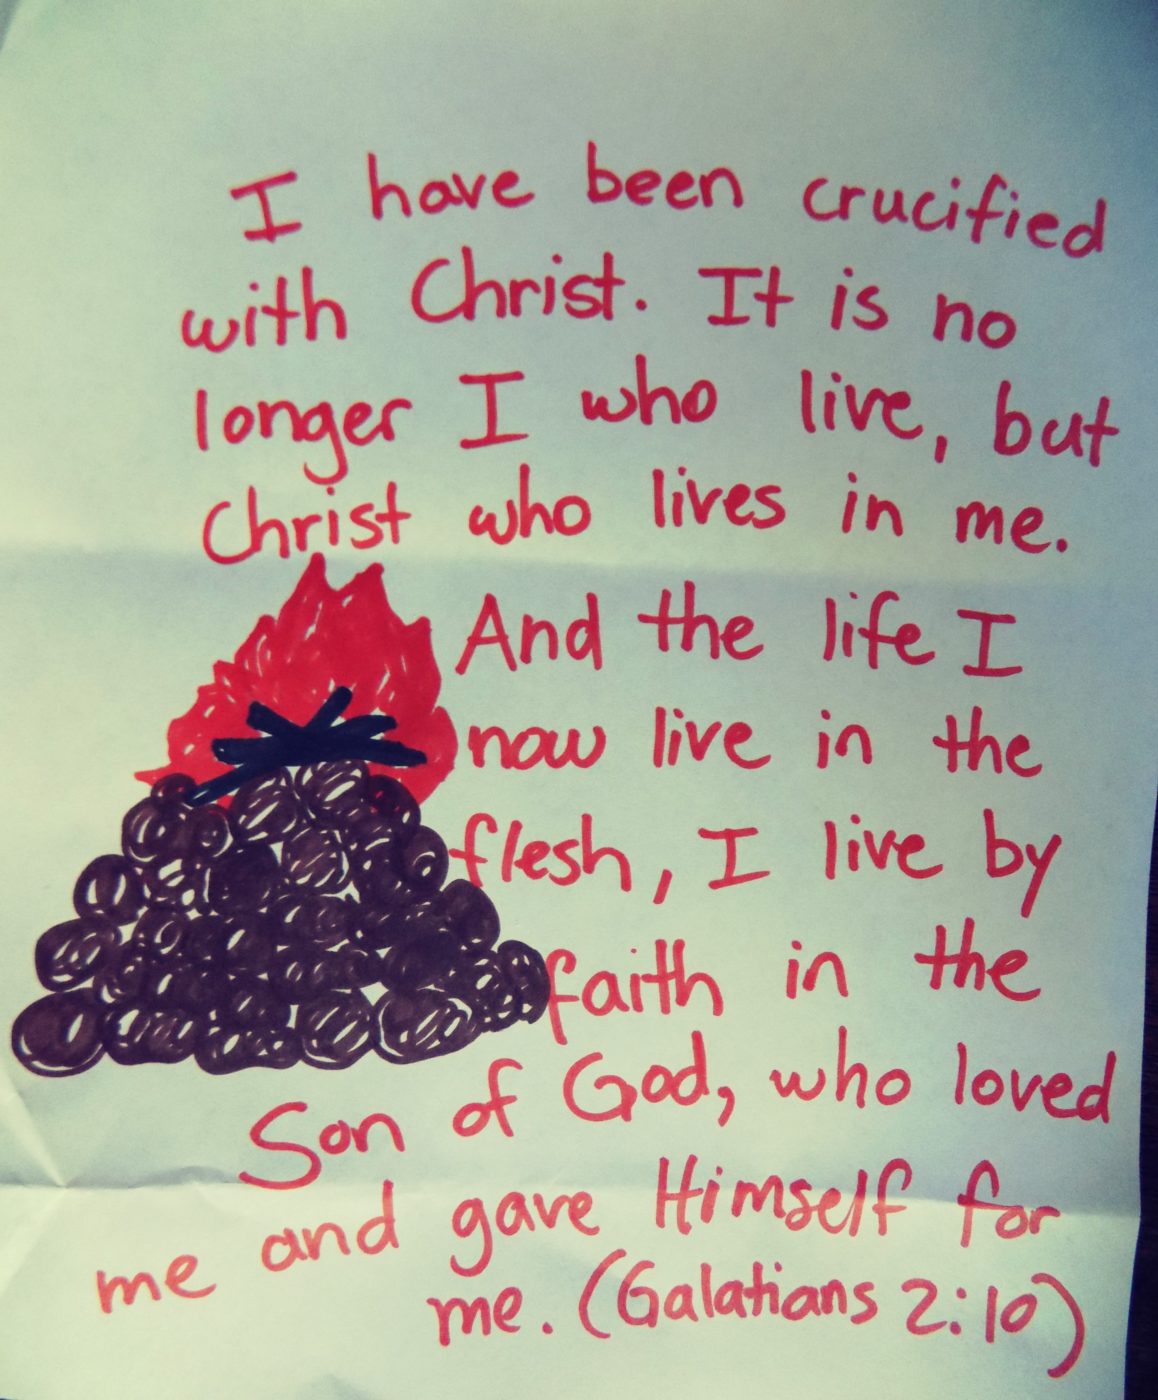 I have been crucified
with Christ. It is no
longer I who live, but
Christ who lives in me.
And the life I
now live in the
flesh, I live by
faith in the
Son of God, who loved
me and gave Himself for
me. (Galatians 2:10)